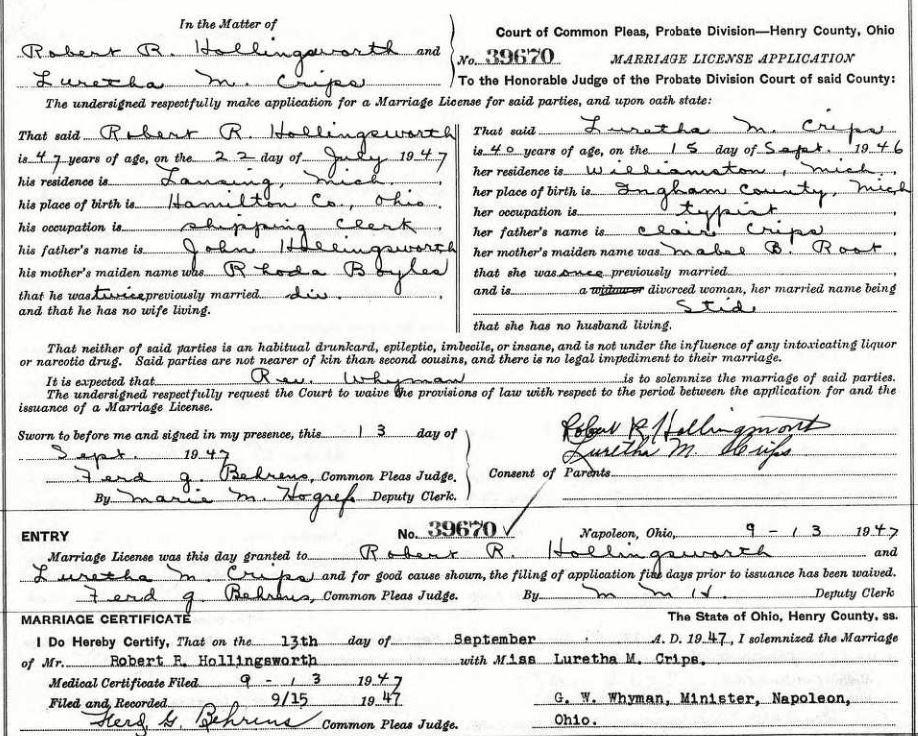 In the Matter of
Robert R. Hollingsworth and
Luretha M. Crips
Court of Common Pleas, Probate Division—Henry County, Ohio
No. 39670 MARRIAGE LICENSE APPLICATION
To the Honorable Judge of the Probate Division Court of said County:
The undersigned respectfully make application for a Marriage License for said parties, and upon oath state:
That said Robert R. Hollingsworth
is 47 years of age, on the 22 day of July 1947
his residence is Lansing, Mich.,
his place of birth is Hamilton Co., Ohio,
his occupation is shipping Clerk,
his father's name is John Hollingsworth
his mother's maiden name was Rhoda Boyles
that he was twice previously married div.,
and that he has no wife living.
That said Luretha M. Crips
is 40 years of age, on the 15 day of Sept. 1946
her residence is Williamston, Mich.,
her place of birth is Ingham County, Mich
her occupation is typist,
her father's name is Clair Crips,
her mother's maiden name was Mabel B. Root,
that she was once previously married,
and is a widow or divorced woman, her married name being
Stid
that she has no husband living.
That neither of said parties is an habitual drunkard, epileptic, imbecile, or insane, and is not under the influence of any intoxicating liquor
or narcotic drug. Said parties are not nearer of kin than second cousins, and there is no legal impediment to their marriage.
It is expected that Rev. Whyman is to solemnize the marriage of said parties.
The undersigned respectfully request the Court to waive the provisions of law with respect to the period between the application for and the
issuance of a Marriage License.
Sworn to before me and signed in my presence, this 13 day of
Sept. 1947
Ferd G. Behrens, Common Pleas Judge.
By Marie M. Hogrefe Deputy Clerk.
Robert R Hollingsworth
Luretha M. Crips
Consent of Parents
ENTRY No. 39670 Napoleon, Ohio, 9-13 1947
Marriage License was this day granted to Robert R. Hollingsworth and
Luretha M. Crips and for good cause shown, the filing of application five days prior to issuance has been waived.
Ferd G. Behrens, Common Pleas Judge. By M M H. Deputy Clerk
MARRIAGE CERTIFICATE The State of Ohio, Henry County, ss.
I Do Hereby Certify, That on the 13th day of September A. D. 1947, I solemnized the Marriage
of Mr. Robert R. Hollingsworth with Miss Luretha M. Crips.
Medical Certificate Filed 9-13 1947
Filed and Recorded 9/15 1947
Ferd G. Behrens Common Pleas Judge.
G. W. Whyman, Minister, Napoleon,
Ohio.